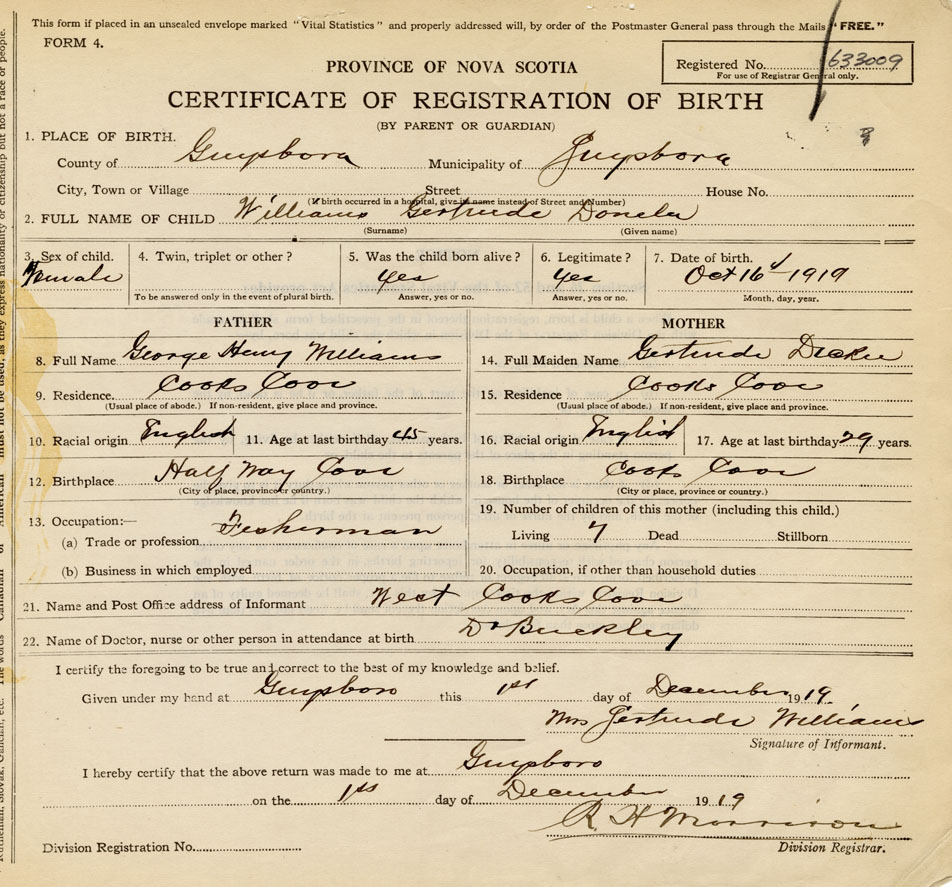 This form if placed in an unsealed envelope marked "Vital Statistics" and properly addressed will, by order of the Postmaster General pass through the Mails "FREE."
FORM 4.
Registered No. 633009
For use of Registrar General only.
PROVINCE OF NOVA SCOTIA
CERTIFICATE OF REGISTRATION OF BIRTH
(BY PARENT OR GUARDIAN)
1. PLACE OF BIRTH.
County of Guysboro Municipality of Guysboro
City, Town or Village Street House No.
(If birth occurred in a hospital, give its name instead of Street and Number)
2. FULL NAME OF CHILD Williams Gertrude
(Surname) (Given name)
3. Sex of child. 4. Twin, triplet or other? 5. Was the child born alive? 6. Legitimate? 7. Date of birth.
Female yes yes Oct 16 1919
To be answered only in the event of plural birth. Answer, yes or no. Answer, yes or no. Month, day, year.
FATHER MOTHER
8. Full Name George Henry Williams 14. Full Maiden Name Gertrude
9. Residence. Cooks Cove 15. Residence Cooks Cove
(Usual place of abode.) If non-resident, give place and province. (Usual place of abode.) If non-resident, give place and province.
10. Racial origin English 11. Age at last birthday 45 years. 16. Racial origin English 17. Age at last birthday 29 years.
12. Birthplace Half Way Cove 18. Birthplace Cooks Cove
(City or place, province or country.) (City or place, province or country.)
13. Occupation:— 19. Number of children of this mother (including this child.)
(a) Trade or profession Fisherman Living 7 Dead Stillborn
(b) Business in which employed 20. Occupation, if other than household duties
21. Name and Post Office address of Informant West Cooks Cove
22. Name of Doctor, nurse or other person in attendance at birth Dr Buckley
I certify the foregoing to be true and correct to the best of my knowledge and belief.
Given under my hand at Guysboro this 1st day of December 1919
Mrs Gertrude Williams
Signature of Informant.
I hereby certify that the above return was made to me at Guysboro
on the 1st day of December 1919
R H Morrison
Division Registrar.
Division Registration No.